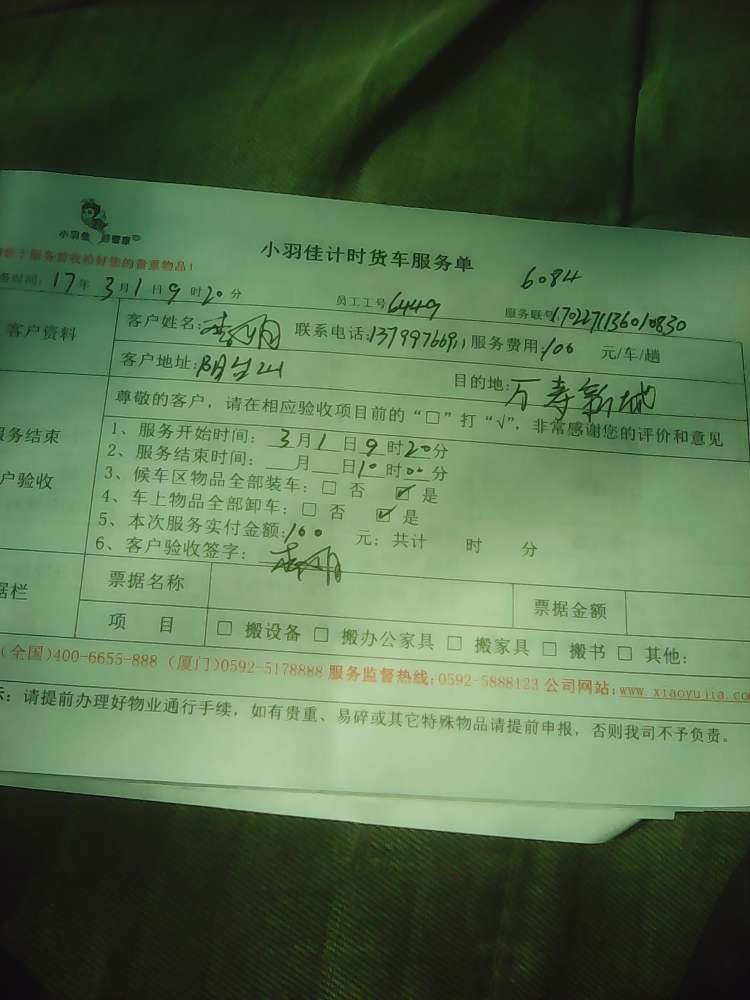 小羽佳 管家
小羽佳计时货车服务单
6084
服务前验收拾好您的贵重物品!
务时间: 17年 3月1日9时20分
员工工号 6449
服务联号 1702271136010830
客户资料
客户姓名:
联系电话:13799766911 服务费用:100 元/车/趟
客户地址:
目的地:万寿新城
尊敬的客户,请在相应验收项目前的“□”打“√”,非常感谢您的评价和意见
服务结束
户验收
1、服务开始时间: 3月1日9时20分
2、服务结束时间: 月 日10时00分
3、候车区物品全部装车:□ 否 ☑ 是
4、车上物品全部卸车:□ 否 ☑ 是
5、本次服务实付金额:100 元;共计 时 分
6、客户验收签字:
据栏
票据名称
票据金额
项 目
□ 搬设备 □ 搬办公家具 □ 搬家具 □ 搬书 □ 其他:
(全国)400-6655-888 (厦门)0592-5178888 服务监督热线:0592-5888123 公司网站:www.xiaoyujia.com
示:请提前办理好物业通行手续,如有贵重、易碎或其它特殊物品请提前申报,否则我司不予负责。